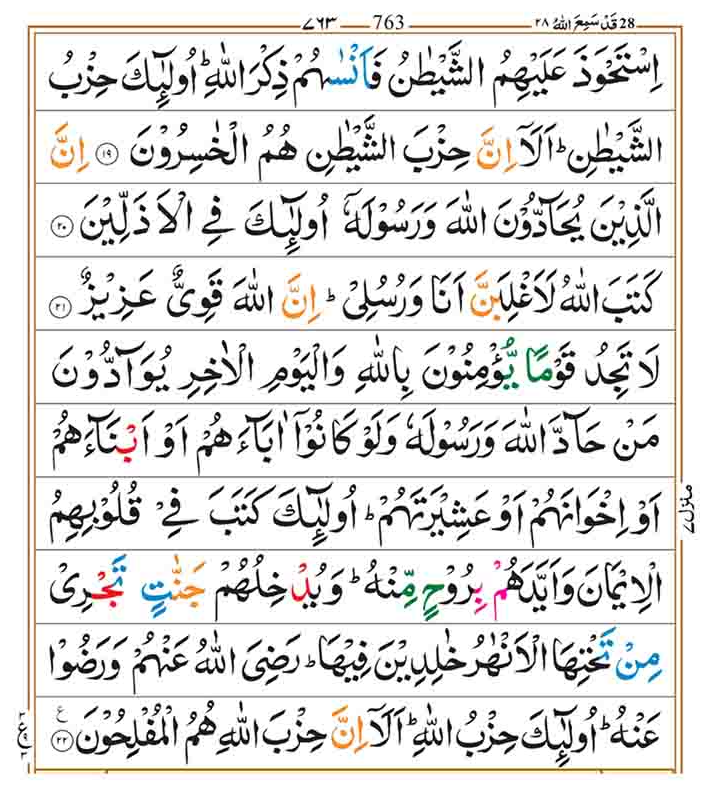 28 قَدْ سَمِعَ اللّٰهُ ۲۸ 763 ۷۶۳
اِسْتَحْوَذَ عَلَيْهِمُ الشَّيْطٰنُ فَاَنْسٰىهُمْ ذِكْرَ اللّٰهِ ؕ اُولٰٓئِكَ حِزْبُ
الشَّيْطٰنِ ؕ اَلَاۤ اِنَّ حِزْبَ الشَّيْطٰنِ هُمُ الْخٰسِرُوْنَ ۱۹ اِنَّ
الَّذِيْنَ يُحَآدُّوْنَ اللّٰهَ وَرَسُوْلَهٗۤ اُولٰٓئِكَ فِي الْاَذَلِّيْنَ ۲۰
كَتَبَ اللّٰهُ لَاَغْلِبَنَّ اَنَا وَرُسُلِيْ ؕ اِنَّ اللّٰهَ قَوِيٌّ عَزِيْزٌ ۲۱
لَا تَجِدُ قَوْمًا يُّؤْمِنُوْنَ بِاللّٰهِ وَالْيَوْمِ الْاٰخِرِ يُوَآدُّوْنَ
مَنْ حَآدَّ اللّٰهَ وَرَسُوْلَهٗ وَلَوْ كَانُوْۤا اٰبَآءَهُمْ اَوْ اَبْنَآءَهُمْ
اَوْ اِخْوَانَهُمْ اَوْ عَشِيْرَتَهُمْ ؕ اُولٰٓئِكَ كَتَبَ فِيْ قُلُوْبِهِمُ
الْاِيْمَانَ وَاَيَّدَهُمْ بِرُوْحٍ مِّنْهُ ؕ وَيُدْخِلُهُمْ جَنّٰتٍ تَجْرِيْ
مِنْ تَحْتِهَا الْاَنْهٰرُ خٰلِدِيْنَ فِيْهَا ؕ رَضِيَ اللّٰهُ عَنْهُمْ وَرَضُوْا
عَنْهُ ؕ اُولٰٓئِكَ حِزْبُ اللّٰهِ ؕ اَلَاۤ اِنَّ حِزْبَ اللّٰهِ هُمُ الْمُفْلِحُوْنَ ۲۲ ع
منزل ۷